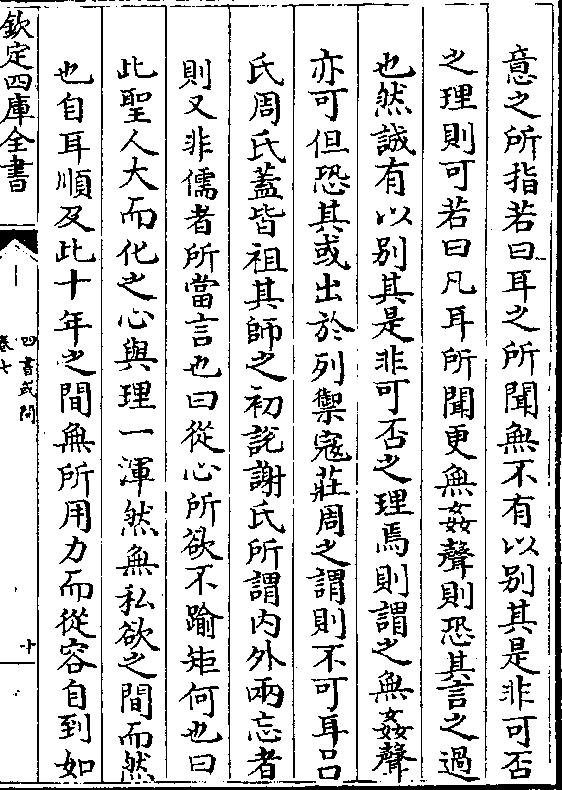 意之所指若曰耳之所聞無不有以别其是非可否
之理則可若曰凡耳所聞更無姦聲則恐其言之過
也然誠有以别其是非可否之理焉則謂之無姦聲
亦可但恐其或出於列禦寇莊周之謂則不可耳吕
氏周氏蓋皆祖其師之初説謝氏所謂内外兩忘者
則又非儒者所當言也曰從心所欲不踰矩何也曰
此聖人大而化之心與理一渾然無私欲之間而然
也自耳順及此十年之間無所用力而從容自到如
欽定四庫全書
四書或問
卷七
十